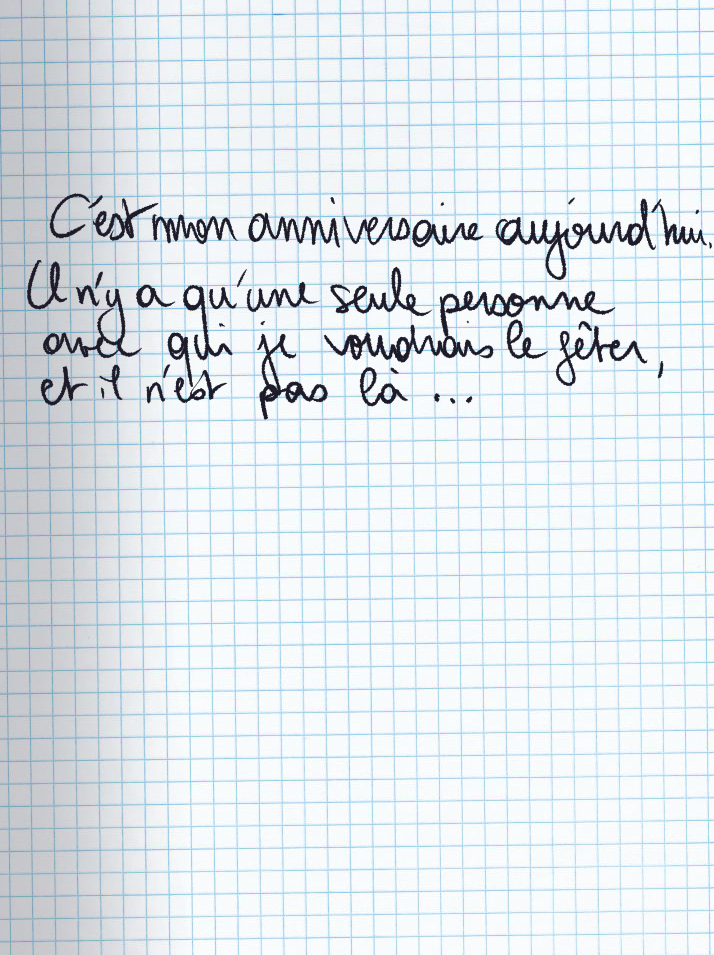 C'est mon anniversaire aujourd'hui.
Il n'y a qu'une seule personne
avec qui je voudrais le fêter,
et il n'est pas là ...